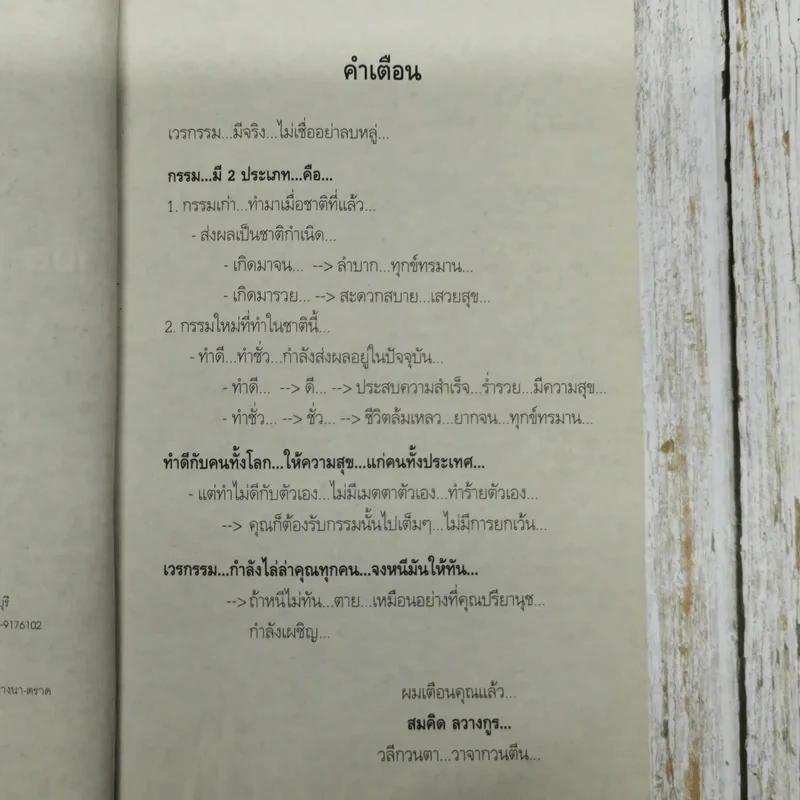 คำเตือน
เวรกรรม...มีจริง...ไม่เชื่ออย่าลบหลู่...
กรรม...มี 2 ประเภท...คือ...
1. กรรมเก่า...ทำมาเมื่อชาติที่แล้ว...
- ส่งผลเป็นชาติกำเนิด...
- เกิดมาจน... --> ลำบาก...ทุกข์ทรมาน...
- เกิดมารวย... --> สะดวกสบาย...เสวยสุข...
2. กรรมใหม่ที่ทำในชาตินี้...
- ทำดี...ทำชั่ว...กำลังส่งผลอยู่ในปัจจุบัน...
- ทำดี... --> ดี... --> ประสบความสำเร็จ...ร่ำรวย...มีความสุข...
- ทำชั่ว... --> ชั่ว... --> ชีวิตล้มเหลว...ยากจน...ทุกข์ทรมาน...
ทำดีกับคนทั้งโลก...ให้ความสุข...แก่คนทั้งประเทศ...
- แต่ทำไม่ดีกับตัวเอง...ไม่มีเมตตาตัวเอง...ทำร้ายตัวเอง...
--> คุณก็ต้องรับกรรมนั้นไปเต็มๆ...ไม่มีการยกเว้น...
เวรกรรม...กำลังไล่ล่าคุณทุกคน...จงหนีมันให้ทัน...
--> ถ้าหนีไม่ทัน...ตาย...เหมือนอย่างที่คุณปรียานุช...
กำลังเผชิญ...
ผมเตือนคุณแล้ว...
สมคิด ลวางกูร...
วลีกวนตา...วาจากวนตีน...
-9176102
างนา-ตราด